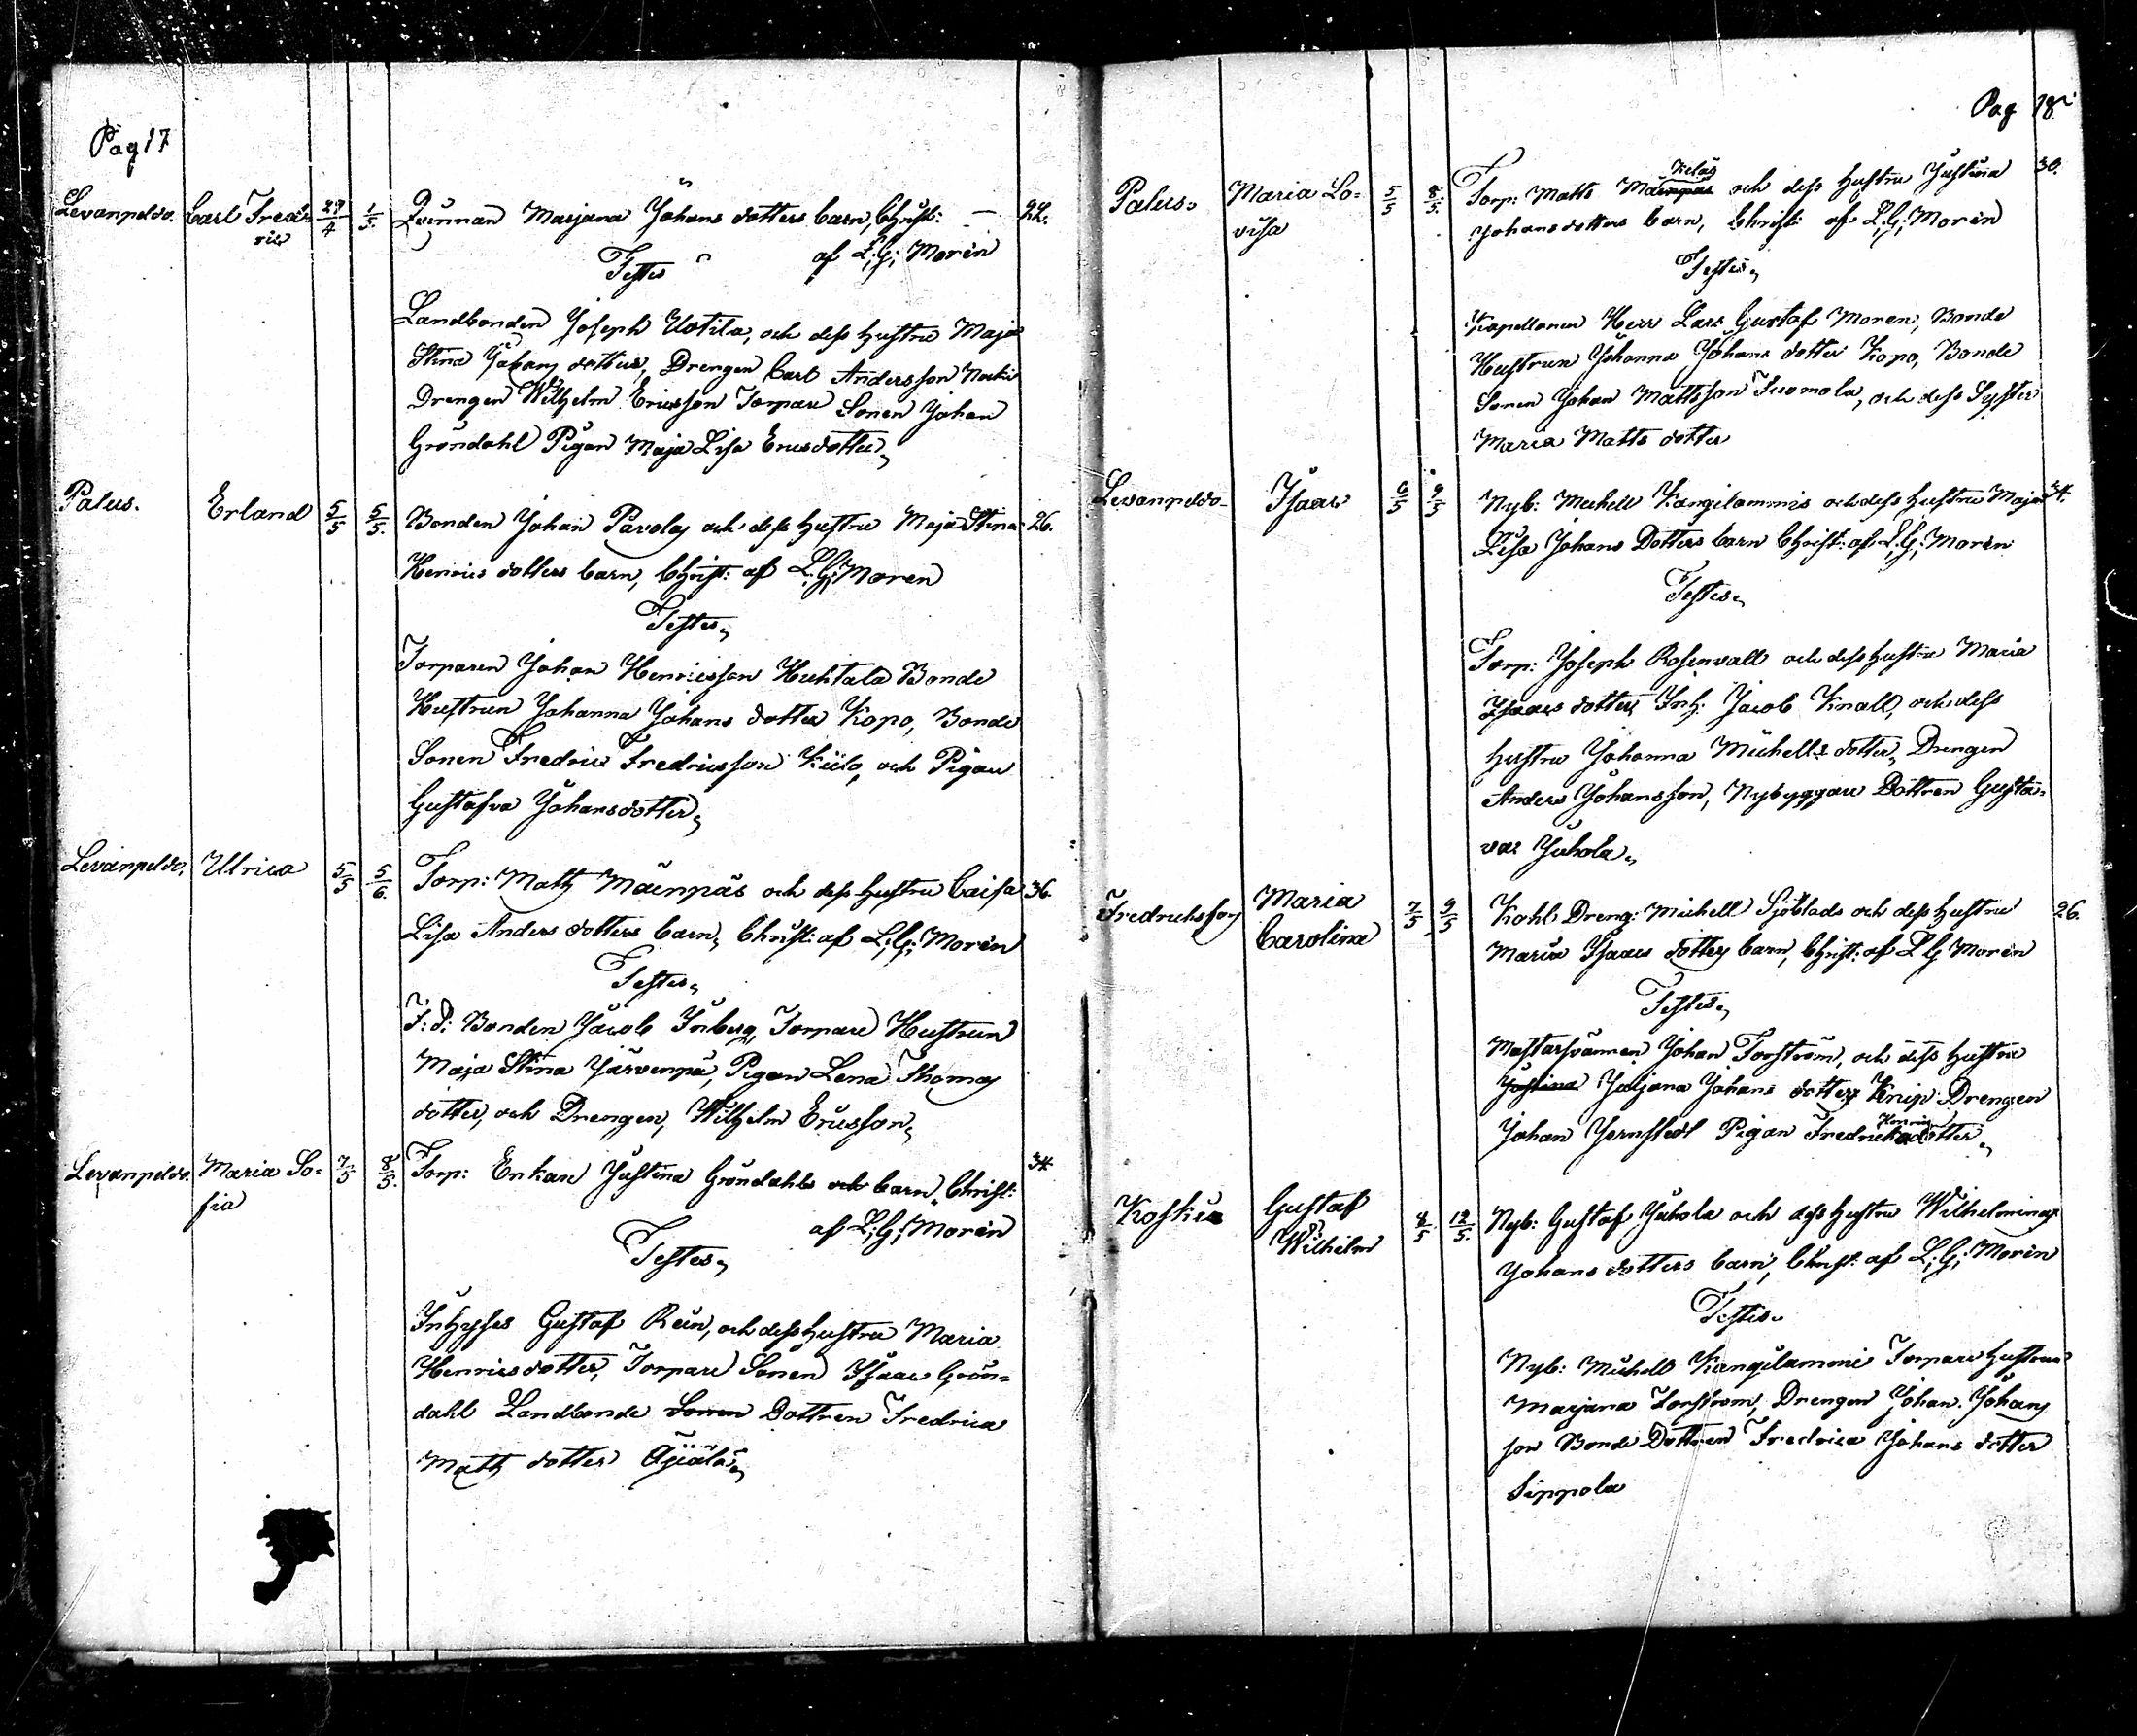 Pag 17
Levanpelto. Carl Fred= 27/4 1/5. Qvinnan Marjana Johans dotters barn, Christ: — 22.
ric
af L; G; Morén
Testes
Landbonden Joseph Uotila, och dess hustru Maja
Stina Johans dotter, Drengen Carl Andersson
Drengen Wilhelm Ericsson Torpare Sonen Johan
Gröndahl Pigan Maja Lisa Ericsdotter„
Palus. Erland 5/5 5/5. Bonden Johan Pavolas och dess hustru Maja Stina 26.
Henrics dotters barn, Christ: af L; G; Moren
Testes„
Torparen Johan Henricsson Huhtala Bonde
Hustrun Johanna Johans dotter Kopo, Bonde
Sonen Fredric Fredricsson Kiilo, och Pigan
Gustafva Johansdotter„
Levanpelto. Ulrica 5/5 5/6. Torp: Matts Mäenpäs och dess hustru Caisa 36.
Lisa Anders dotters barn„ Christ: af L; G; Morén
Testes„
F: d: Bonden Jacob Inberg, Torpare Hustrun
Maja Stina Järvenpä, Pigan Lena Thomas
dotter, och Drengen, Wilhelm Ericsson„
Levanpelto. Maria So= 7/5 8/5. Torp: Enkan Justina Gröndahls och barn„ Christ: 34.
fia
af L; G; Morén
Testes„
Inhyses Gustaf Rein, och dess hustru Maria
Henricsdotter, Torpare Sonen Isaac Grön=
dahl Landbonde Sonen Dottren Fredrica
Matts dotter Äijälä„
Pag 18.
Palus. Maria Lo= 5/5 8/5. Torp: Matts Mäenpäs Kiilas och dess hustru Justina 30.
visa
Johans dotters barn, Christ: af L; G; Morén
Testes„
Kapellanen Herr Lars Gustaf Moren, Bonde
Hustrun Johanna Johans dotter Kopo, Bonde
Sonen Johan Mattsson Tuomola, och dess Syster
Maria Matts dotter
Levanpelto Isaac 6/5 9/5 Nyb: Michell Kangilammis och dess hustru Maja 34.
Lisa Johans Dotters barn Christ: af L; G; Morén
Testes„
Torp: Joseph Rosenvall och dess hustru Maria
Isaacs dotter Inh: Jacob Knall, och dess
hustru Johanna Michells dotter, Drengen
Anders Johansson, Nybyggare Dottren Gusta=
va Juhola„
Fredrichsfors Maria 7/5 9/5 Kohl Dreng: Michell Sjöblads och dess hustru 26.
Carolina
Maria Isaacs dotters barn, Christ: af L G Morén
Testes„
Mastarsvännen Johan Forström, och dess hustru
Justina Juljana Johans dotter Knip Drengen
Johan Jernstedt Pigan Fredrica Henrics dotter„
Koskis Gustaf 8/5 12/5. Nyb: Gustaf Juhola och dess hustru Wilhelminas
Wilhelm
Johans dotters barn, Christ: af L; G; Morén
Testes„
Nyb: Michell Kangilammi Torpare hustrun
Marjana Forström, Drengen Johan Johans
son Bonde Dottren Fredrica Johans dotter
Sippola